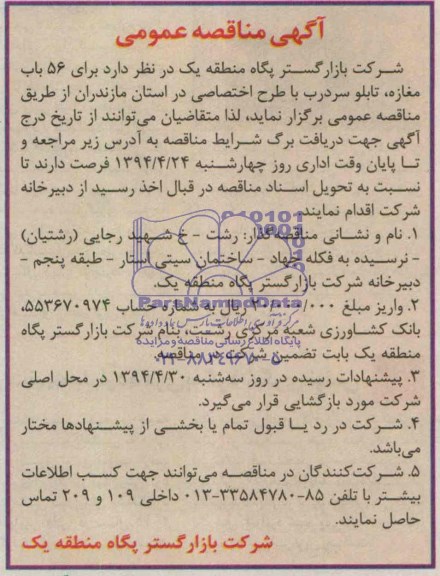 آگهی مناقصه عمومی
شرکت بازارگستر پگاه منطقه یک در نظر دارد برای ۵۶ باب
مغازه، تابلو سردرب با طرح اختصاصی در استان مازندران از طریق
مناقصه عمومی برگزار نماید، لذا متقاضیان می‌توانند از تاریخ درج
آگهی جهت دریافت برگ شرایط مناقصه به آدرس زیر مراجعه و
تا پایان وقت اداری روز چهارشنبه ۱۳۹۴/۴/۲۴ فرصت دارند تا
نسبت به تحویل اسناد مناقصه در قبال اخذ رسید از دبیرخانه
شرکت اقدام نمایند.
۱. نام و نشانی مناقصه‌گذار: رشت - خ شهید رجایی (رشتیان)
- نرسیده به فلکه جهاد - ساختمان سیتی استار - طبقه پنجم -
دبیرخانه شرکت بازارگستر پگاه منطقه یک.
۲. واریز مبلغ ریال به شماره حساب ۵۵۳۶۷۰۹۷۴،
بانک کشاورزی شعبه مرکزی رشت، بنام شرکت بازارگستر پگاه
منطقه یک بابت تضمین شرکت در مناقصه.
۳. پیشنهادات رسیده در روز سه‌شنبه ۱۳۹۴/۴/۳۰ در محل اصلی
شرکت مورد بازگشایی قرار می‌گیرد.
۴. شرکت در رد یا قبول تمام یا بخشی از پیشنهادها مختار
می‌باشد.
۵. شرکت‌کنندگان در مناقصه می‌توانند جهت کسب اطلاعات
بیشتر با تلفن ۸۵-۳۳۵۸۴۷۸۰-۰۱۳ داخلی ۱۰۹ و ۲۰۹ تماس
حاصل نمایند.
شرکت بازارگستر پگاه منطقه یک
ParsNamadData
پایگاه اطلاع رسانی مناقصه و مزایده